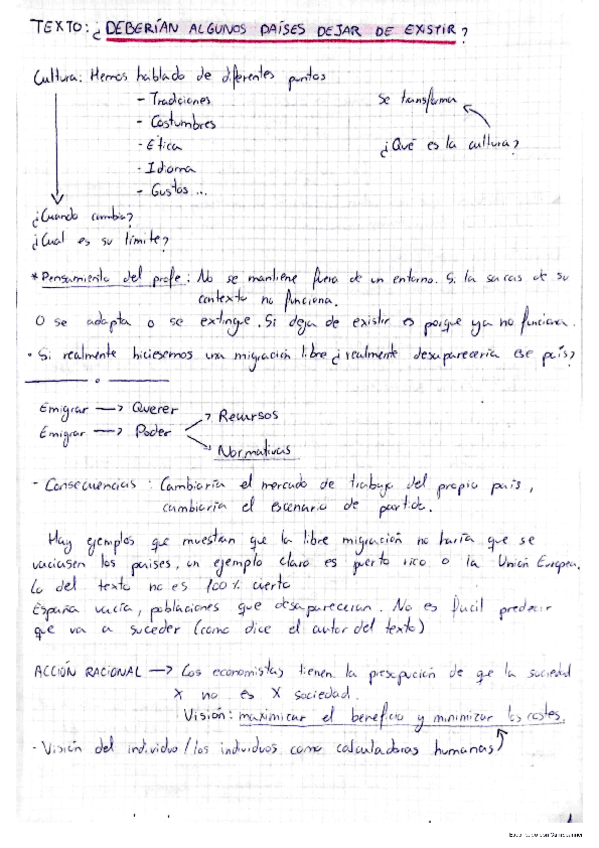 TEXTO: ¿DEBERÍAN ALGUNOS PAÍSES DEJAR DE EXISTIR?
Cultura: Hemos hablado de diferentes puntos
- Tradiciones
- Costumbres
- Etica
- Idioma
- Gustos ...
Se transforma
¿Qué es la cultura?
¿Cuando cambia?
¿Cual es su límite?
* Pensamiento del profe: No se mantiene fuera de un entorno. Si la sacas de su
contexto no funciona.
O se adapta o se extingue. Si deja de existir es porque ya no funciona.
· Si realmente hiciesemos una migración libre ¿realmente desaparecería ese país?
Emigrar → Querer
Emigrar → Poder
→ Recursos
→ Normativas
- Consecuencias: Cambiaría el mercado de trabajo del propio país,
cambiaría el escenario de partida.
Hay ejemplos que muestran que la libre migración no haría que se
vaciasen los países, un ejemplo claro es puerto rico o la Unión Europea.
Lo del texto no es 100% cierto
España vacía, poblaciones que desaparecieran. No es fácil predecir
que va a suceder (como dice el autor del texto)
ACCIÓN RACIONAL → Los economistas tienen la presupción de que la sociedad
X no es X sociedad.
Visión: maximizar el beneficio y minimizar los costes.
- Visión del individuo / los individuos como calculadoras humanas